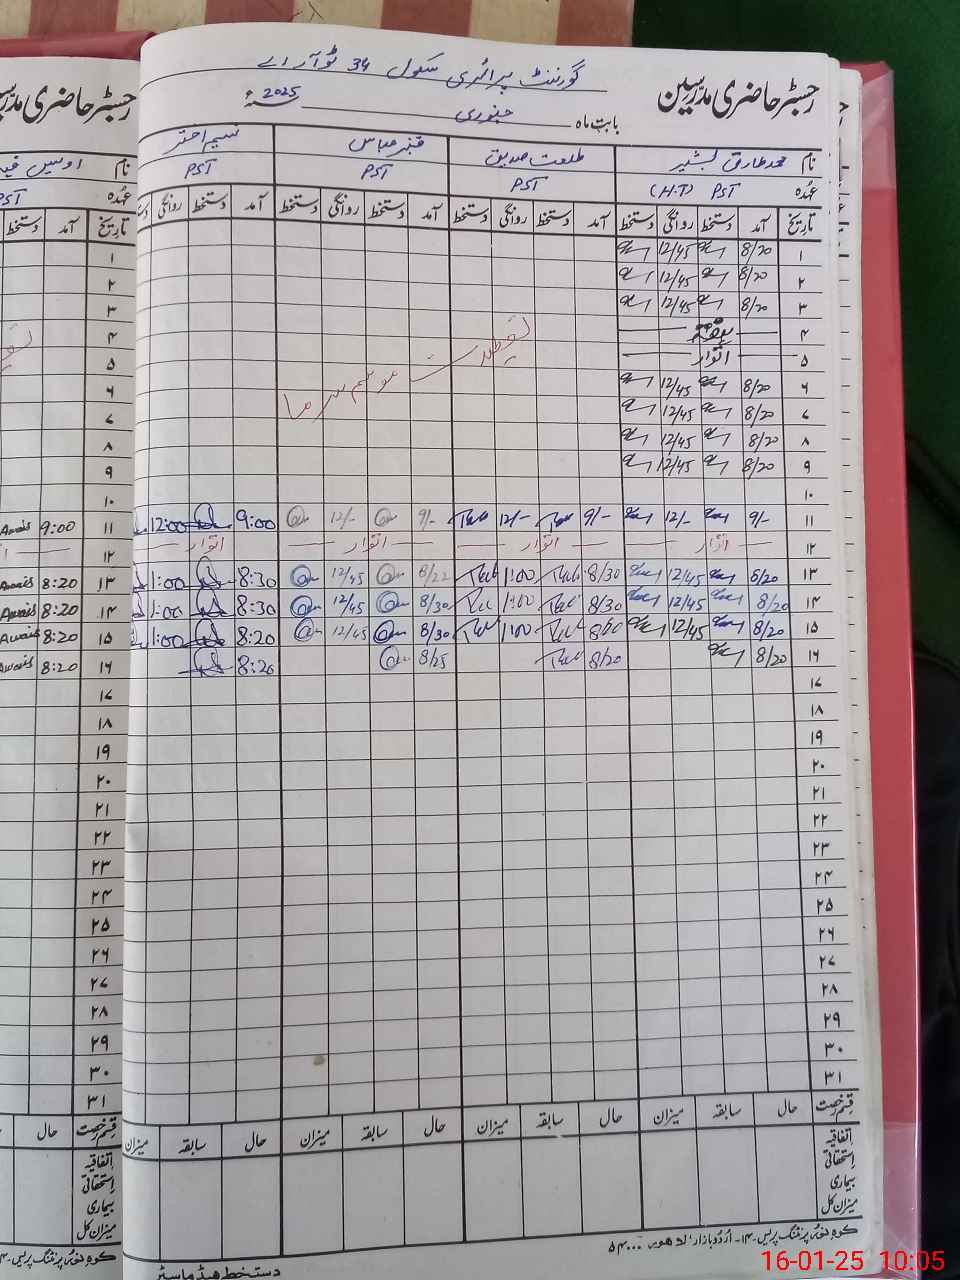 رجسٹر حاضری مدرسین
گورنمنٹ پرائمری سکول 34 ٹو آر اے
بابت ماہ جنوری 2025ء
نام محمد طارق بشیر طلعت صدیق قنبر عباس نسیم اختر
عہدہ PST (H.T) PST PST PST
تاریخ آمد دستخط روانگی دستخط آمد دستخط روانگی دستخط آمد دستخط روانگی دستخط آمد دستخط روانگی
۱ 8/20 12/45
۲ 8/20 12/45
۳ 8/20 12/45
۴ ہفتہ
۵ اتوار
۶ 8/20 12/45
۷ 8/20 12/45
۸ 8/20 12/45
۹ 8/20 12/45
تعطیلات موسم سرما
۱۰
۱۱ 9/- 12/- 9/- 12/- 9/- 12/- 9:00 12:00
۱۲ اتوار اتوار اتوار اتوار
۱۳ 8/20 12/45 8/30 1:00 8/22 12/45 8:30 1:00
۱۴ 8/20 12/45 8/30 1:00 8/30 12/45 8:30 1:00
۱۵ 8/20 12/45 1:00 8/30 12/45 8:20 1:00
۱۶ 8/20 8/20 8/25 8:20
۱۷
۱۸
۱۹
۲۰
۲۱
۲۲
۲۳
۲۴
۲۵
۲۶
۲۷
۲۸
۲۹
۳۰
۳۱
قسم رخصت حال سابقہ میزان حال سابقہ میزان حال سابقہ میزان حال سابقہ میزان
اتفاقیہ
استحقاقی
بیماری
میزان کل
کوہ نور پرنٹنگ پریس ۱۴- اردو بازار لاہور
دستخط ہیڈ ماسٹر
رجسٹر حاضری مدرسین
نام اویس
عہدہ PST
تاریخ آمد دستخط
۱
۲
۳
۴
۵
۶
۷
۸
۹
۱۰
۱۱ 9:00 Awais
۱۲
۱۳ 8:20 Awais
۱۴ 8:20 Awais
۱۵ 8:20 Awais
۱۶ 8:20 Awais
۱۷
۱۸
۱۹
۲۰
۲۱
۲۲
۲۳
۲۴
۲۵
۲۶
۲۷
۲۸
۲۹
۳۰
۳۱
قسم رخصت حال
اتفاقیہ
استحقاقی
بیماری
میزان کل
کوہ نور پرنٹنگ پریس
16-01-25 10:05